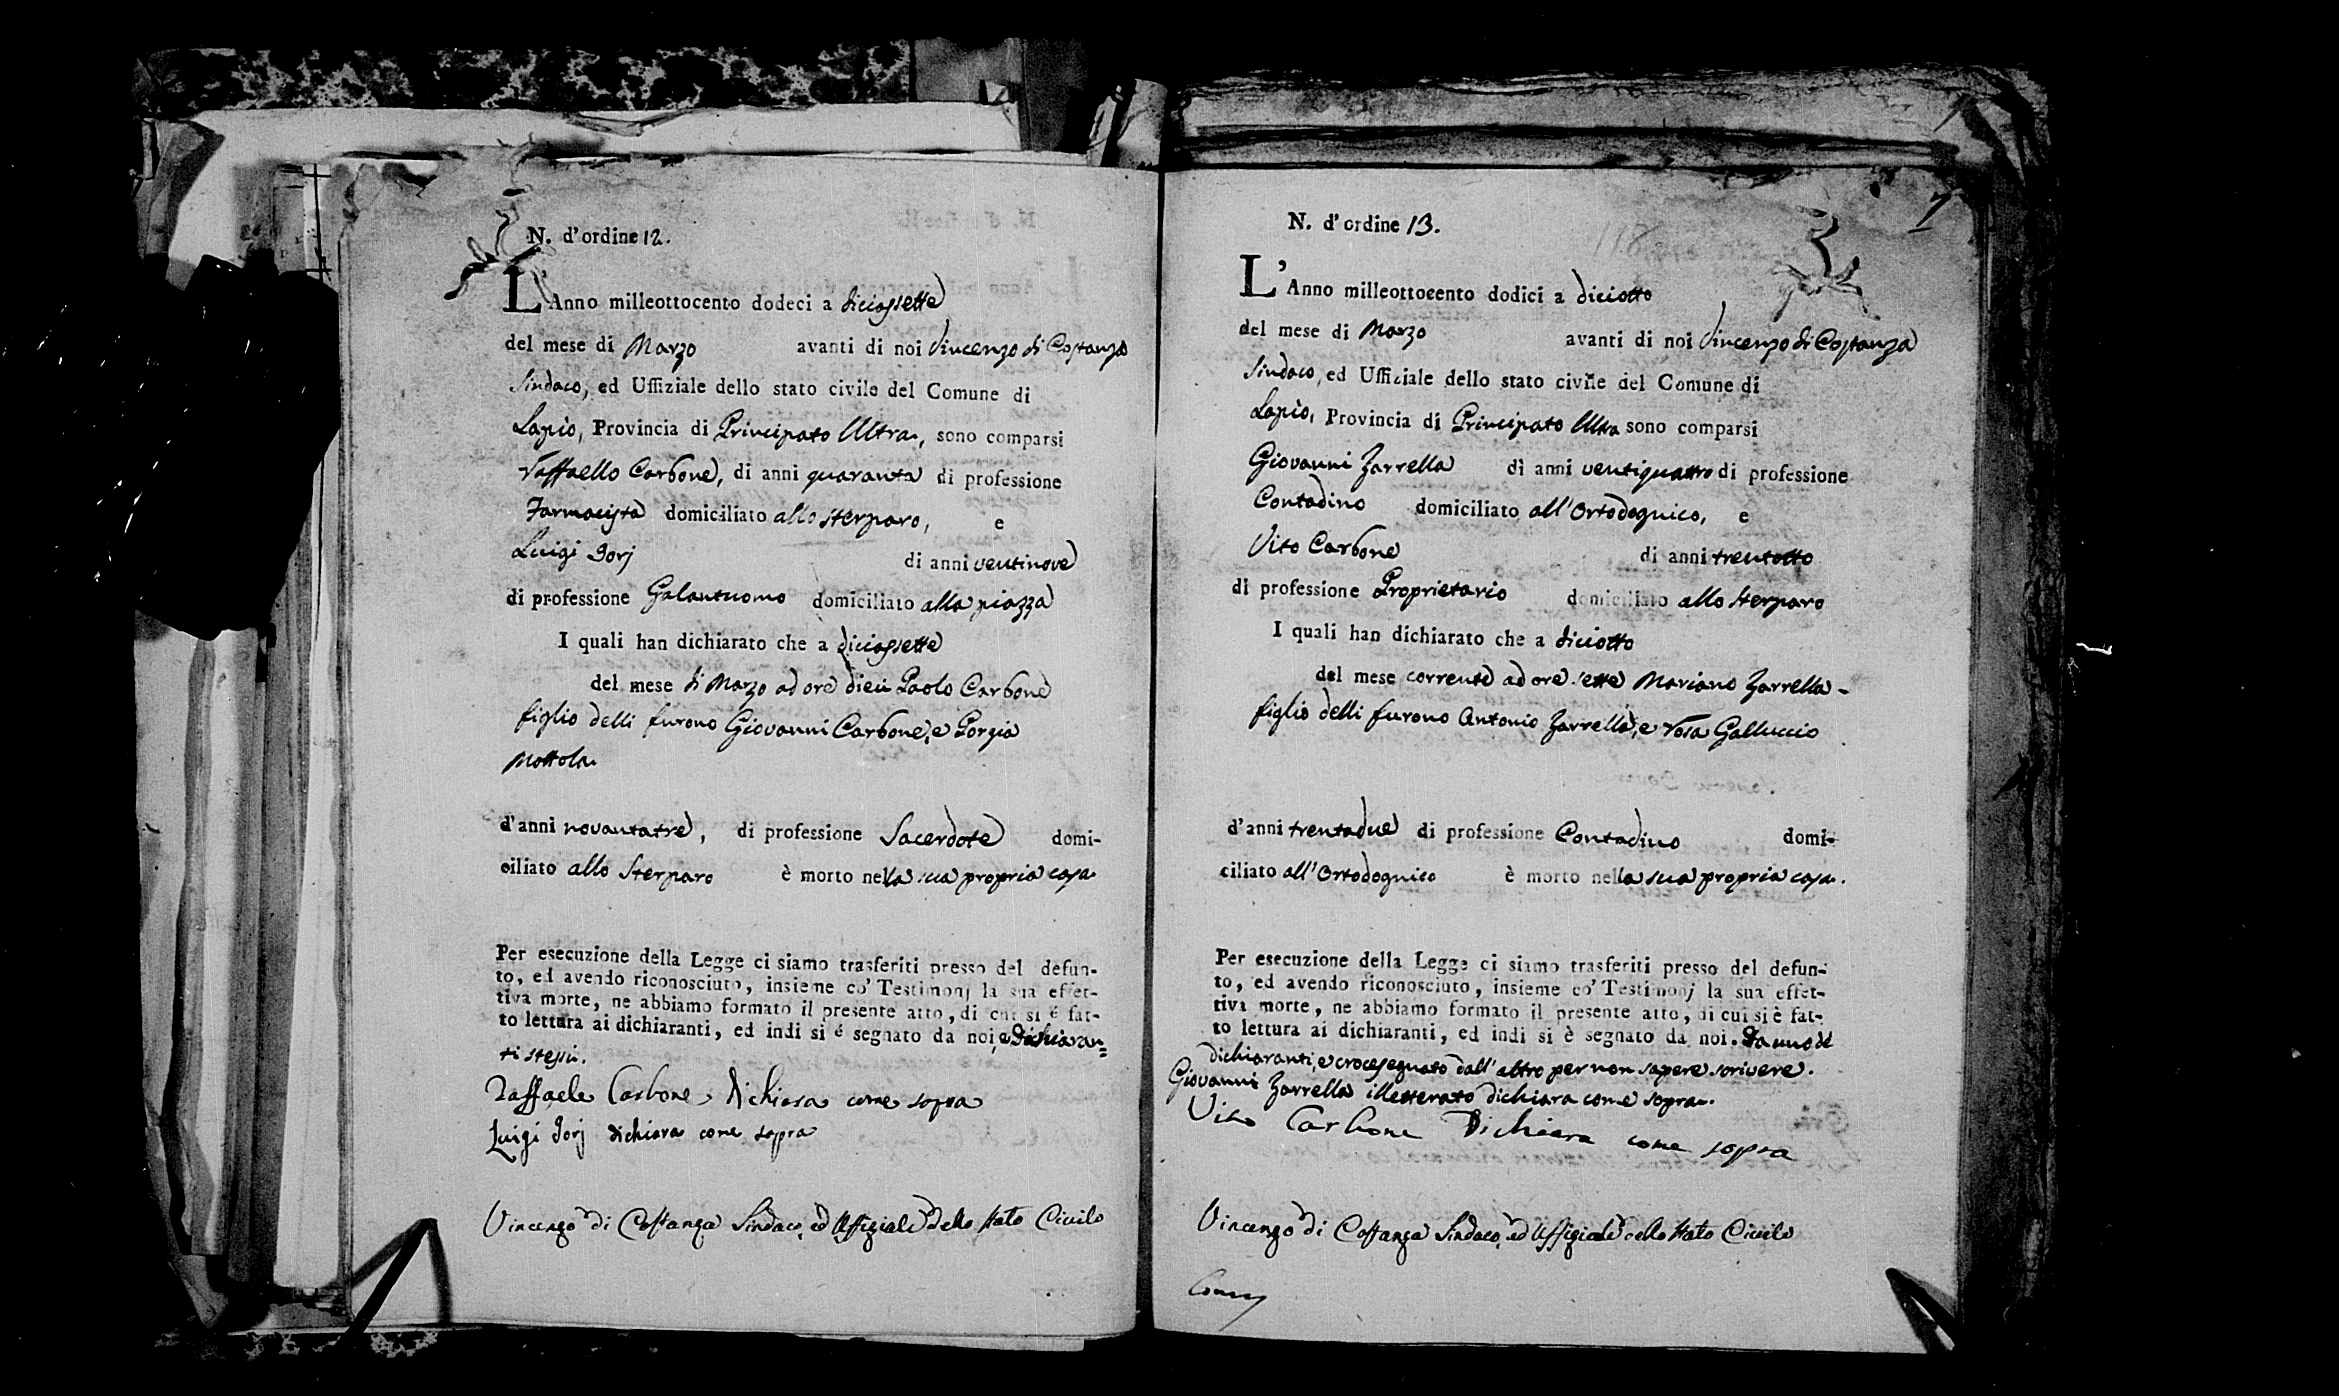 N. d'ordine 12.
L'Anno milleottocento dodeci a diciassette
del mese di Marzo avanti di noi Vincenzo di Costanzo
Sindaco, ed Uffiziale dello stato civile del Comune di
Lapio, Provincia di Principato Ultra, sono comparsi
Raffaello Carbone, di anni quaranta di professione
Farmacista domiciliato allo Sterparo, e
Luigi Iorj di anni ventinove
di professione Galantuomo domiciliato alla piazza
I quali han dichiarato che a diciassette
del mese di Marzo ad ore dieci Paolo Carbone
figlio delli furono Giovanni Carbone, e Porzia
Mottola
d'anni novantatre, di professione Sacerdote domi-
ciliato allo Sterparo è morto nella sua propria casa
Per esecuzione della Legge ci siamo trasferiti presso del defun-
to, ed avendo riconosciuto, insieme co' Testimonj la sua effet-
tiva morte, ne abbiamo formato il presente atto, di cui si é fat-
to lettura ai dichiaranti, ed indi si é segnato da noi, e dichiaran=
ti stessi.
Raffaele Carbone dichiara come sopra
Luigi Iorj dichiara come sopra
Vincenzo di Costanza Sindaco, ed Uffiziale dello Stato Civile
7
N. d'ordine 13.
L'Anno milleottocento dodici a diciotto
del mese di Marzo avanti di noi Vincenzo di Costanza
Sindaco, ed Uffiziale dello stato civile del Comune di
Lapio, Provincia di Principato Ultra sono comparsi
Giovanni Zarrella di anni ventiquattro di professione
Contadino domiciliato all'Ortodognico, e
Vito Carbone di anni trentotto
di professione Proprietario domiciliato allo Sterparo
I quali han dichiarato che a diciotto
del mese corrente ad ore sette Mariano Zarrella -
figlio delli furono Antonio Zarrella, e Rosa Galluccio
d'anni trentadue di professione Contadino domi-
ciliato all'Ortodognico è morto nella sua propria casa.
Per esecuzione della Legge ci siamo trasferiti presso del defun-
to, ed avendo riconosciuto, insieme co' Testimonj la sua effet-
tiva morte, ne abbiamo formato il presente atto, di cui si è fat-
to lettura ai dichiaranti, ed indi si è segnato da noi. Da uno de
dichiaranti, e crocesegnato dall'altro per non sapere scrivere.
Giovanni Zarrella illetterato dichiara come sopra.
Vito Carbone Dichiara come sopra
Vincenzo di Costanza Sindaco, ed Uffiziale dello Stato Civile